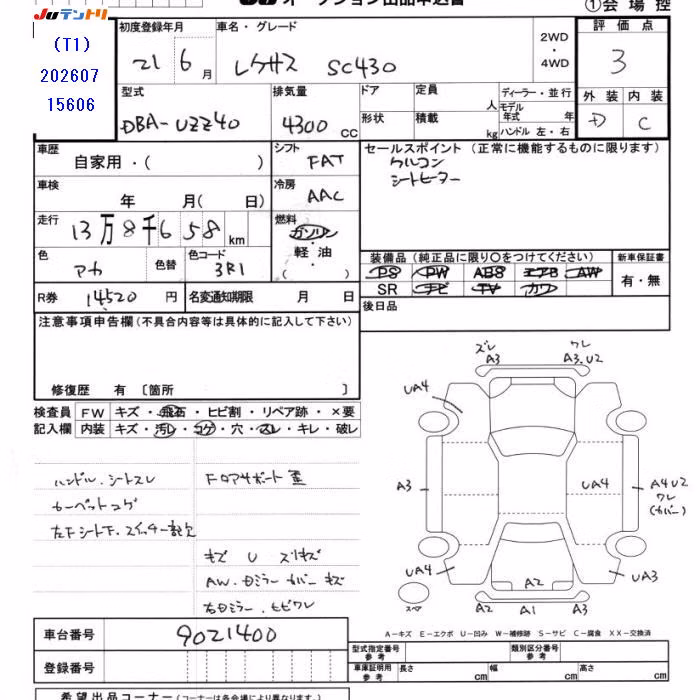 JUテントリ
オークション出品申込書
①会場控
(T1)
202607
15606
初度登録年月
21 6月
車名・グレード
レクサス SC430
2WD
・
4WD
評価点
3
外装 内装
D C
型式
DBA-UZZ40
排気量
4300 CC
ドア
定員
人
形状
積載
kg
ディーラー・並行
モデル年式 年
ハンドル 左・右
車歴
自家用・( )
シフト
FAT
セールスポイント(正常に機能するものに限ります)
クルコン
シートヒーター
車検
年 月( 日)
冷房
AAC
走行
13万8千658 km
燃料
ガソリン
・
軽油
( )
色
アカ
色替
色コード
3R1
装備品(純正品に限り○をつけてください)
PS PW ABS エアB AW
SR ナビ TV カワ
新車保証書
有・無
R券 14520 円
名変通知期限 月 日
後日品
注意事項申告欄(不具合内容等は具体的に記入して下さい)
修復歴 有 〔箇所 〕
検査員 FW キズ・飛石・ヒビ割・リペア跡・×要
記入欄 内装 キズ・汚レ・コゲ・穴・スレ・キレ・破レ
ハンドル.シートスレ
カーペットコゲ
左Fシート下.スイッチ一部欠
Fロアサポート歪
キズ U スリキズ
AW.ドミラーカバーキズ
右ドミラー.ヒビワレ
ズレ
A3
ワレ
A3.U2
UA4
A3
UA4
A4U2
ワレ
(カバー)
UA4
A2
UA3
スペア
A2 A1 A3
A-キズ E-エクボ U-凹み W-補修跡 S-サビ C-腐食 XX-交換済
車台番号 9021400
登録番号
型式指定番号
参考
類別区分番号
参考
車庫証明用
参考
長さ cm 幅 cm 高さ cm
希望出品コーナー(コーナーは各会場により異なります)